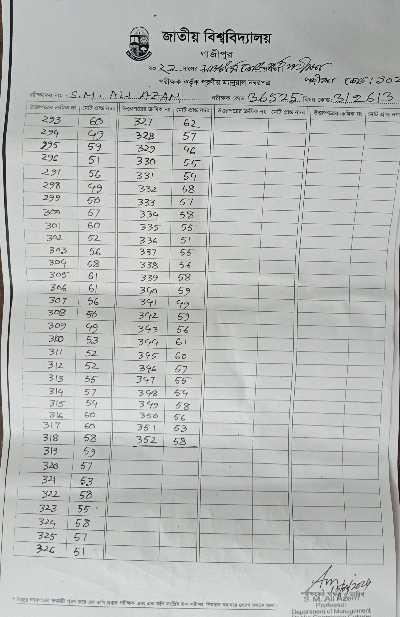 জাতীয় বিশ্ববিদ্যালয়
গাজীপুর
পরীক্ষক কর্তৃক প্রদত্ত
পরীক্ষকের নাম S.M. ALI AZAM পরীক্ষক কোড 36525 বিষয় কোড: 312613
উত্তরপত্রের ক্রমিক নং মোট প্রাপ্ত নম্বর উত্তরপত্রের ক্রমিক নং মোট প্রাপ্ত নম্বর উত্তরপত্রের ক্রমিক নং মোট প্রাপ্ত নম্বর উত্তরপত্রের ক্রমিক নং মোট প্রাপ্ত নম্বর
293 60 327 62
294 49 328 57
295 59 329 46
296 51 330 55
297 56 331 54
298 49 332 48
299 50 333 57
300 57 334 58
301 60 335 55
302 52 336 51
303 56 337 55
304 58 338 56
305 61 339 58
306 61 340 59
307 56 341 49
308 50 342 59
309 49 343 56
310 53 344 61
311 52 345 60
312 52 346 57
313 55 347 55
314 57 348 54
315 54 349 58
316 60 350 56
317 60 351 53
318 58 352 58
319 59
320 57
321 53
322 58
323 55
324 58
325 57
326 51
S. M. Ali Azam
Professor
Department of Management